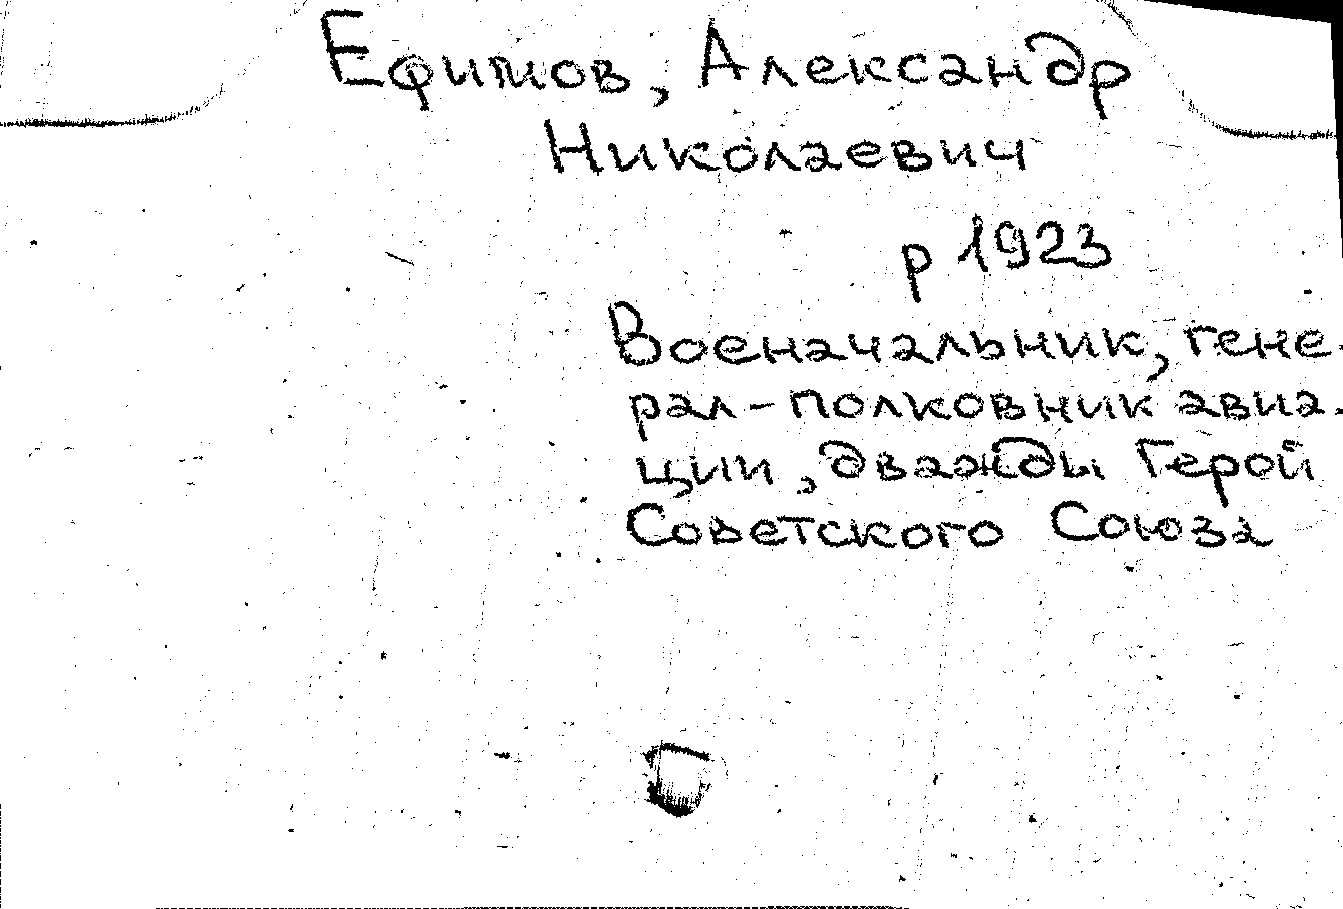 Ефимов, Александр
Николаевич
р 1923
Военачальник, гене-
рал-полковник авиа-
ции, дважды Герой
Советского Союза